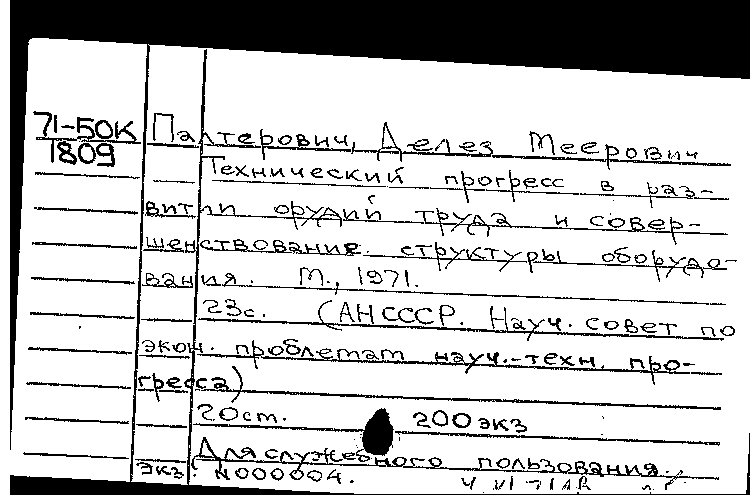 71-50К Палтерович, Делез Меерович
1809
Технический прогресс в раз-
витии орудий труда и совер-
шенствование структуры оборудо-
вания. М., 1971.
23с. (АН СССР. Науч. совет по
экон. проблемам науч.-техн. про-
гресса)
20см. 200 экз
Для служебного пользования.
экз. N000004.